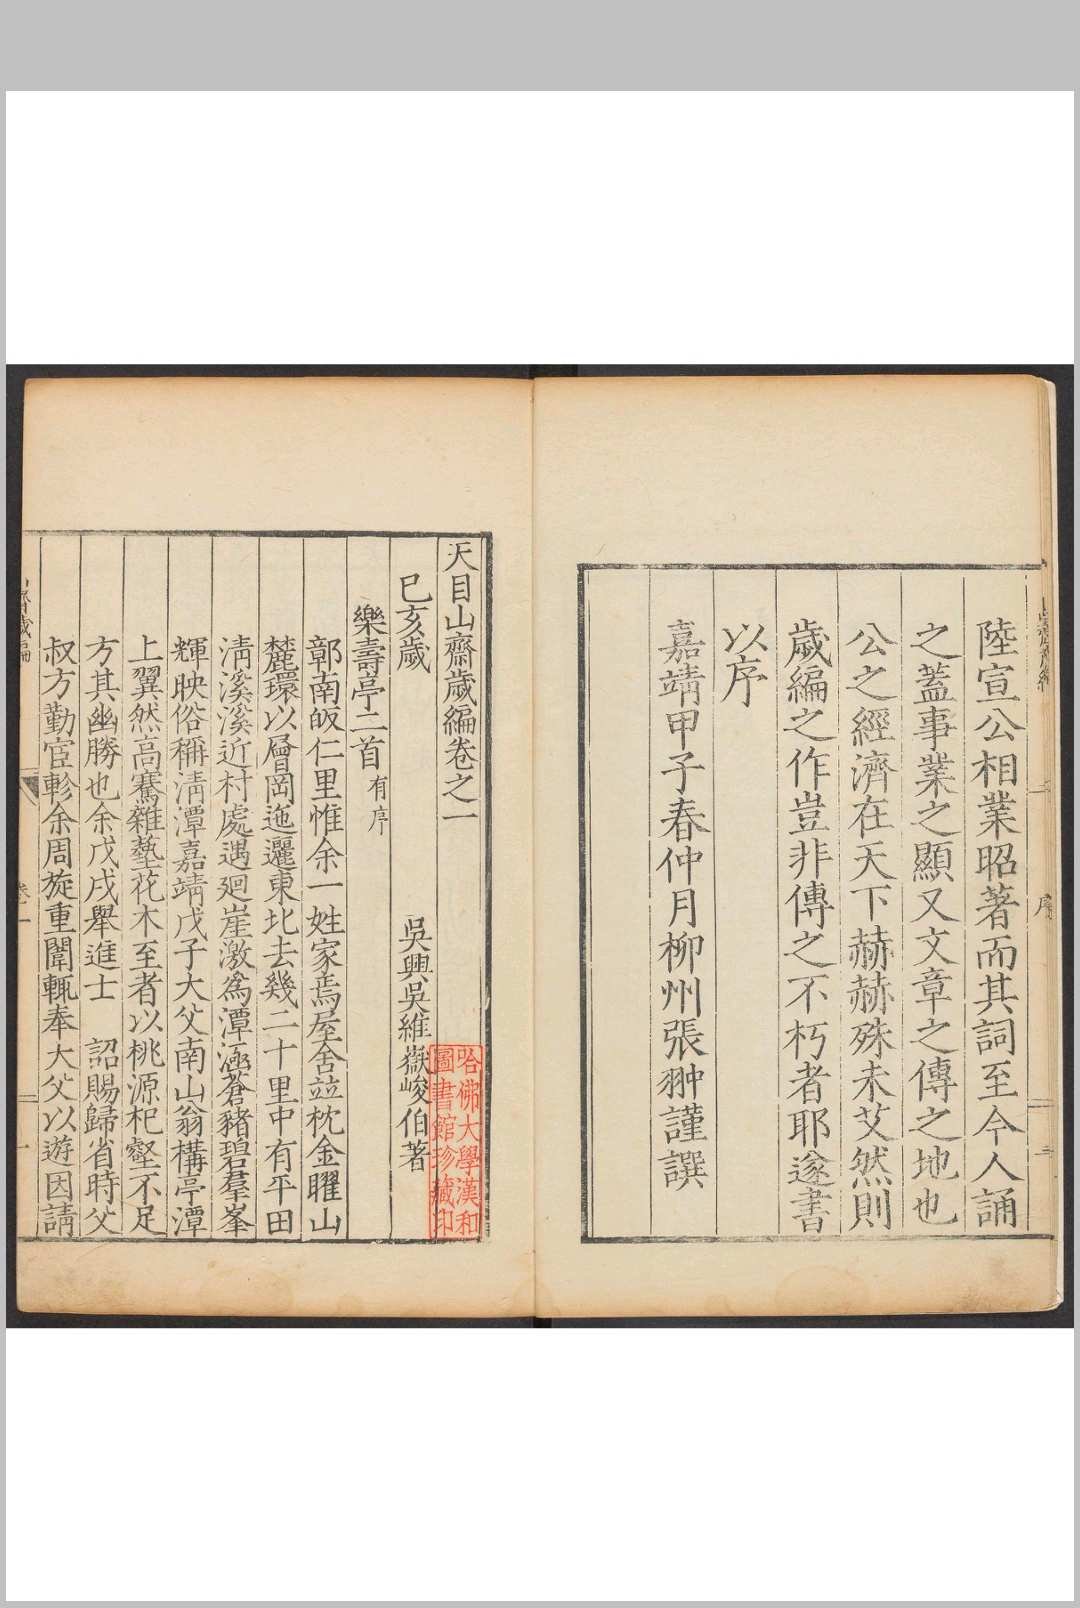 陸宣公相業昭著而其詞至今人誦
之蓋事業之顯又文章之傳之地也
公之經濟在天下赫赫殊未艾然則
歲編之作豈非傳之不朽者耶遂書
以序
嘉靖甲子春仲月柳州張翀謹譔
天目山齋歲編卷之一
吳興吳維嶽峻伯著
己亥歲
樂壽亭二首 有序
鄣南皈仁里惟余一姓家焉屋舍竝枕金曜山
麓環以層岡迤邐東北去幾二十里中有平田
清溪溪近村處遇廻崖激為潭涵蒼豬碧羣峯
輝映俗稱清潭嘉靖戊子大父南山翁構亭潭
上翼然高騫雜蓺花木至者以桃源杞壑不足
方其幽勝也余戊戌舉進士 詔賜歸省時父
叔方勤宦軫余周旋重闈輒奉大父以遊因請
哈佛大學漢和
圖書館珍藏印